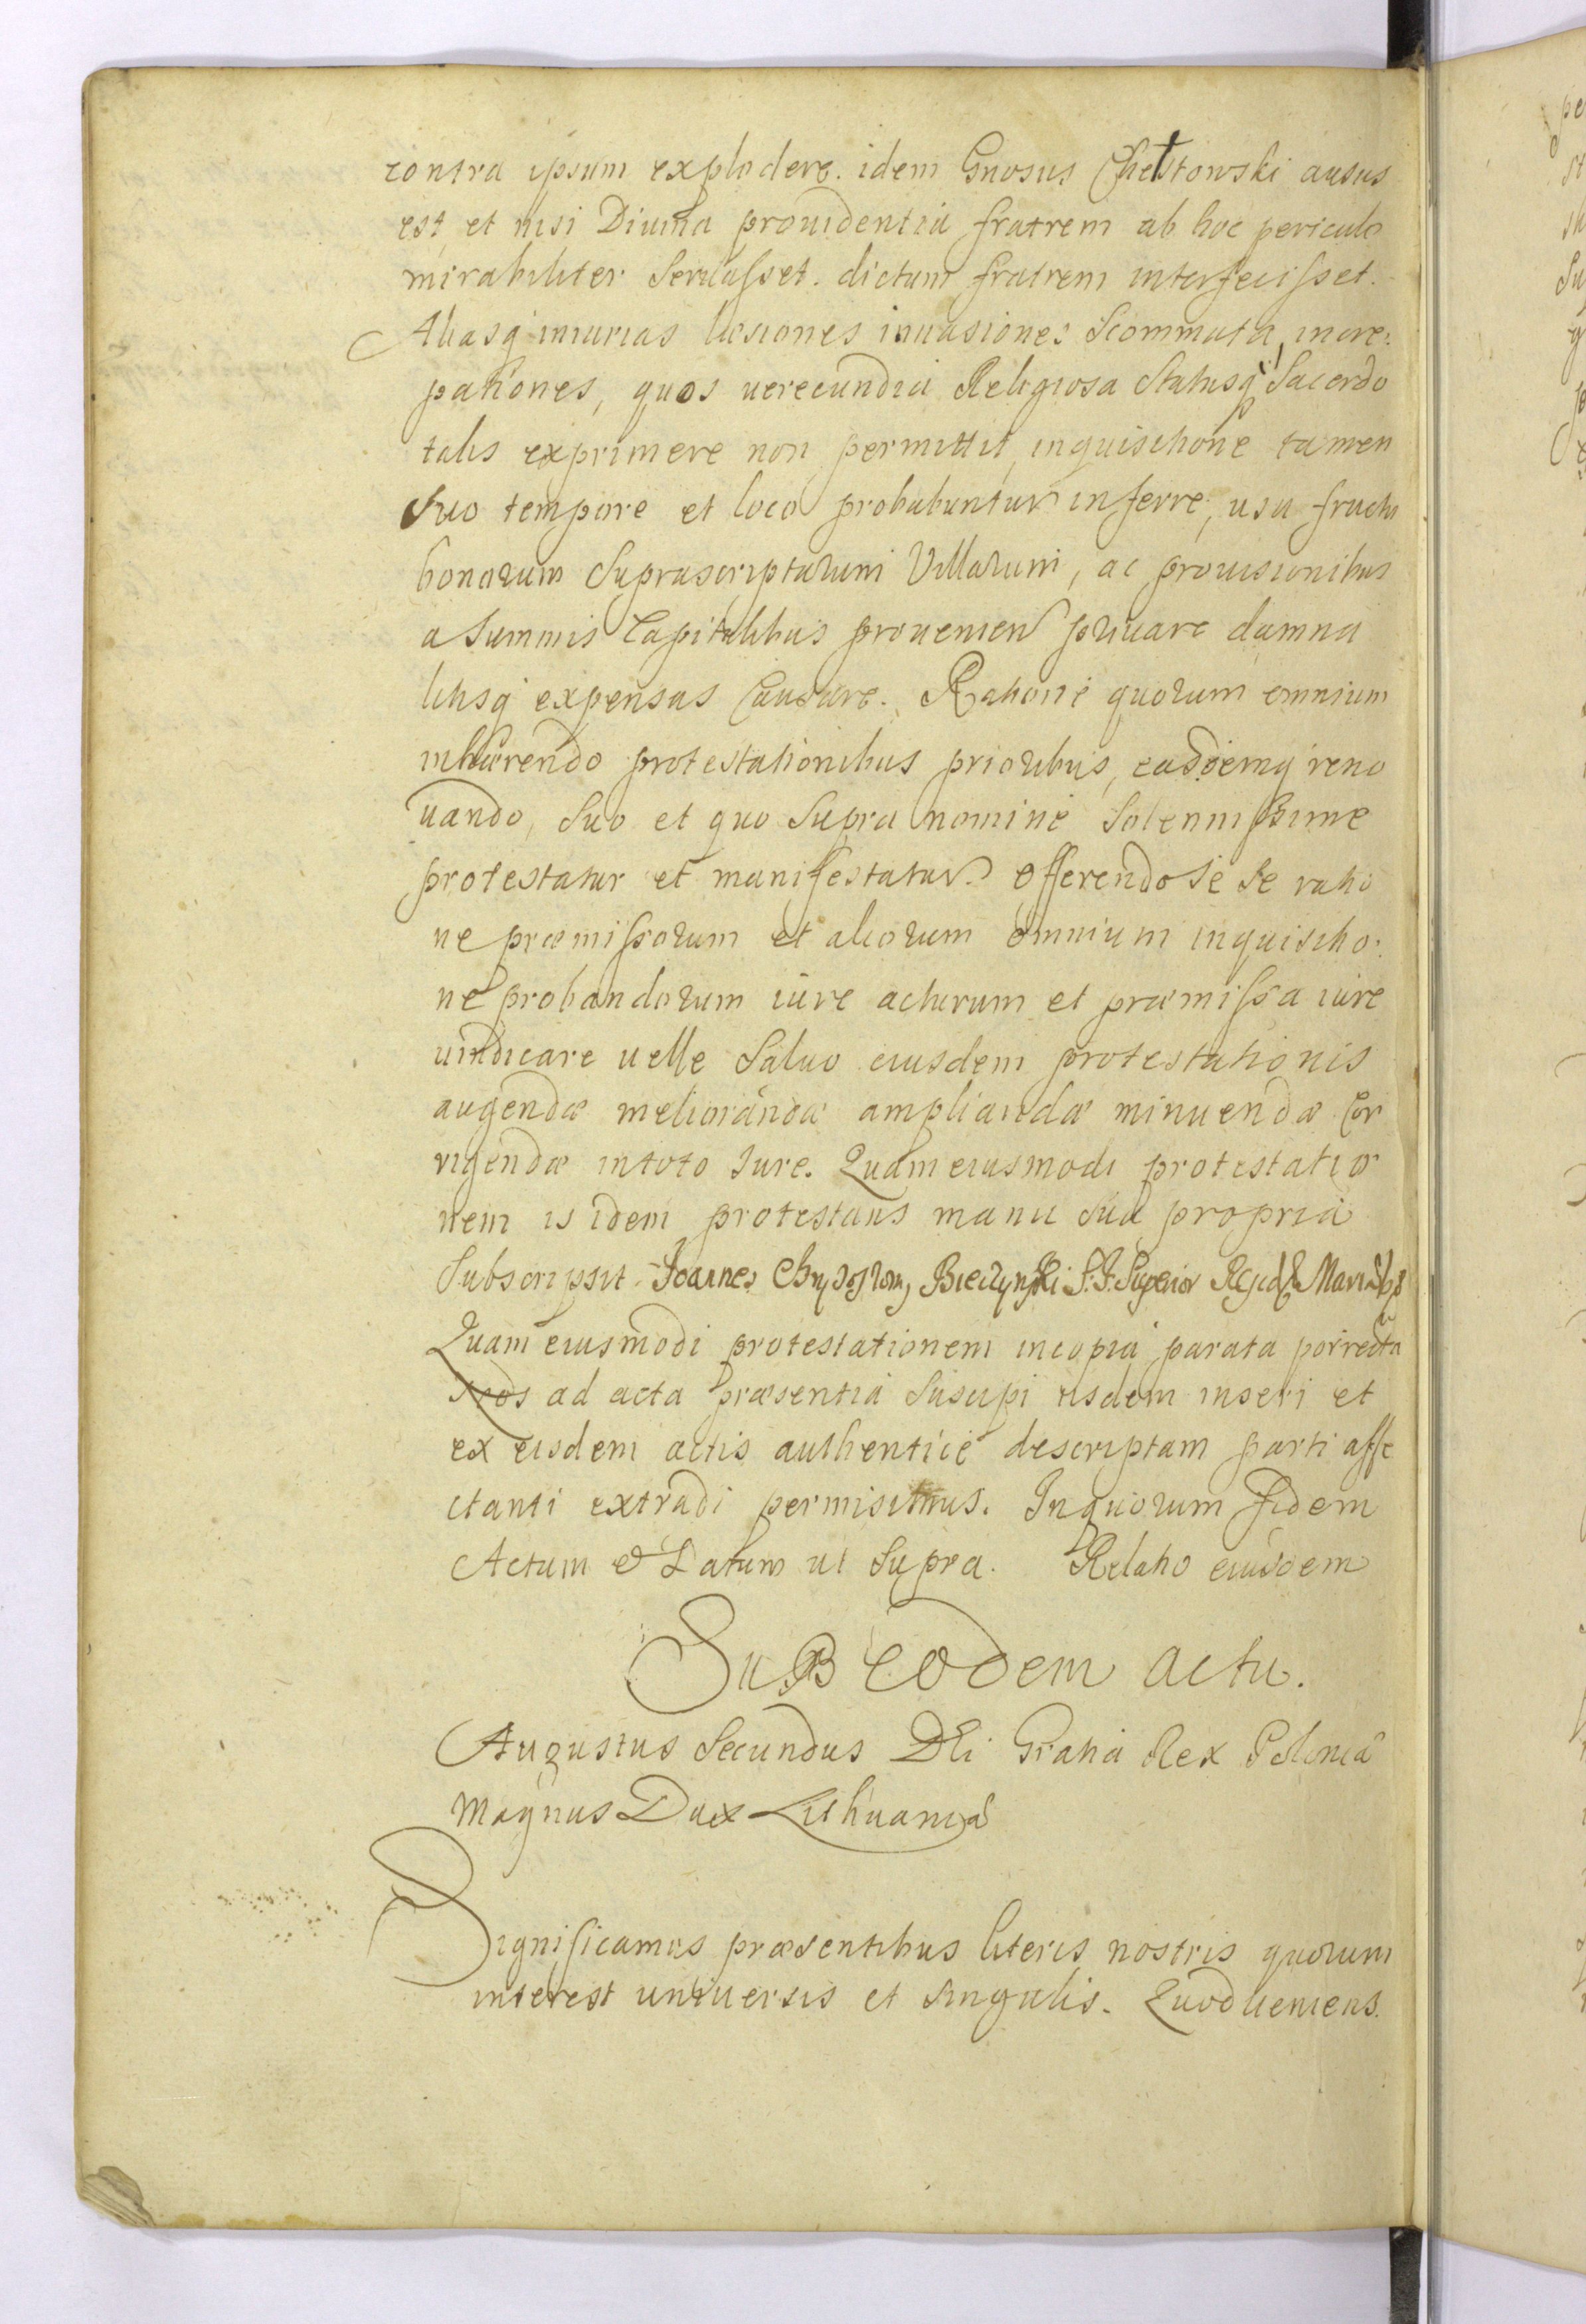 contra ipsum explodere. idem Gnosus Chełstowski ausus
est et nisi Diuina prouidentia fratrem ab hoc periculo
mirabiliter Seruasset. dictum fratrem interfecisset.
Aliasq iniurias læsiones inuasiones Scommata, incre:
pationes, quos uerecundia Religiosa Statusq Sacerdo
talis exprimere non permittit, inquisitione tamen
Suo tempore et loco probabuntur inferre, usu fructu
bonorum Suprascriptarum Villarum, ac prouisionibus
a Summis Capitalibus prouenien priuare damna
litisq expensas Causare. Ratione quorum omnium
inhærendo protestationibus prioribus, easdemq reno
uando, Suo et quo Supra nomine Solennissime
protestatur et manifestatur. Offerendo se se ratio
ne præmissorum et aliorum omnium inquisitio:
ne probandorum iure acturum et præmissa iure
uindicare uelle Saluo eiusdem protestationis
augendæ meliorandæ ampliandæ minuendæ Cor
rigendæ in toto Iure. Quam eiusmodi protestatio
nem is idem protestans manu Sua propria
Subscripsit. Joannes Chrysostom, S.J. Superior
Quam eiusmodi protestationem in copia parata porrecta
Nos ad acta præsentia Suscipi iisdem inseri et
ex eisdem actis authentice descriptam parti affe
ctanti extradi permisimus. In quorum fidem
Actum & Datum ut Supra. Relatio eiusdem
Sub eodem actu.
Augustus Secundus DEi Gratia Rex Poloniæ
Magnus Dux Lithuaniæ
Significamus præsentibus literis nostris quorum
interest uniuersis et Singulis. Quod ueniens.